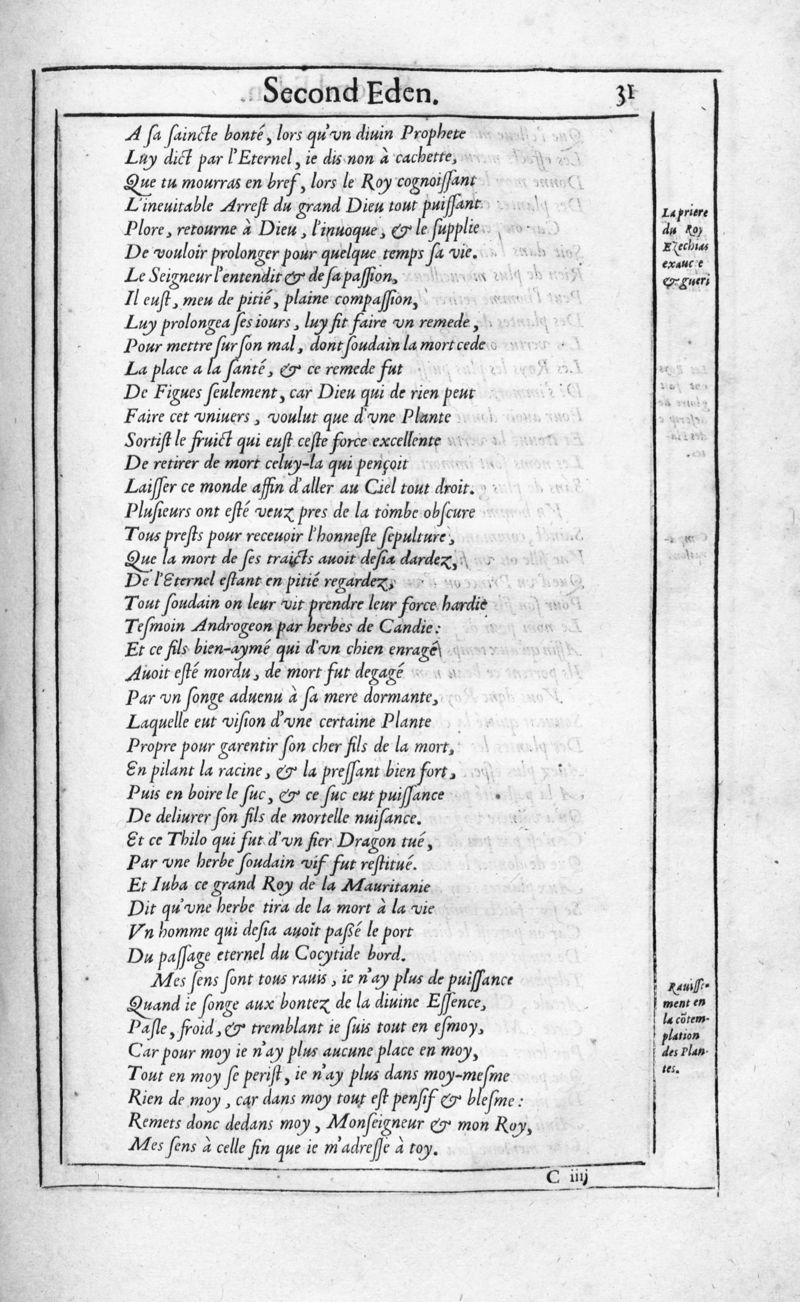 Second Eden. 31
A ſa ſaincte bonté, lors qu'vn diuin Prophete
Luy dict par l'Eternel, ie dis non à cachette,
Que tu mourras en bref, lors le Roy cognoiſſant
L'ineuitable Arreſt du grand Dieu tout puiſſant
Plore, retourne à Dieu, l'inuoque, & le ſupplie
De vouloir prolonger pour quelque temps ſa vie.
Le Seigneur l'entendit & de ſa paſſion,
Il euſt, meu de pitié, plaine compaſſion,
Luy prolongea ſes iours, luy fit faire vn remede,
Pour mettre ſur ſon mal, dont ſoudain la mort cede
La place a la ſanté, & ce remede fut
De Figues ſeulement, car Dieu qui de rien peut
Faire cet vniuers, voulut que d'vne Plante
Sortiſt le fruict qui euſt ceſte force excellente
De retirer de mort celuy-la qui pençoit
Laiſſer ce monde affin d'aller au Ciel tout droit.
Pluſieurs ont eſté veuz pres de la tombe obſcure
Tous preſts pour receuoir l'honneſte ſepulture,
Que la mort de ſes traicts auoit deſia dardez,
De l'Eternel eſtant en pitié regardez,
Tout ſoudain on leur vit prendre leur force hardie
Teſmoin Androgeon par herbes de Candie:
Et ce fils bien-aymé qui d'vn chien enragé
Auoit eſté mordu, de mort fut degagé
Par vn ſonge aduenu à ſa mere dormante,
Laquelle eut viſion d'vne certaine Plante
Propre pour garentir ſon cher fils de la mort,
En pilant la racine, & la preſſant bien fort,
Puis en boire le ſuc, & ce ſuc eut puiſſance
De deliurer ſon fils de mortelle nuiſance.
Et ce Thilo qui fut d'vn fier Dragon tué,
Par vne herbe ſoudain vif fut reſtitué.
Et Iuba ce grand Roy de la Mauritanie
Dit qu'vne herbe tira de la mort à la vie
Vn homme qui deſia auoit paßé le port
Du paſſage eternel du Cocytide bord.
Mes ſens ſont tous rauis, ie n'ay plus de puiſſance
Quand ie ſonge aux bontez de la diuine Eſſence,
Paſle, froid, & tremblant ie ſuis tout en eſmoy,
Car pour moy ie n'ay plus aucune place en moy,
Tout en moy ſe periſt, ie n'ay plus dans moy-meſme
Rien de moy, car dans moy tout eſt penſif & bleſme:
Remets donc dedans moy, Monſeigneur & mon Roy,
Mes ſens à celle fin que ie m'adreſſe à toy.
C iiij
La priere
du Roy
Ezechias
& gueri
Rauiſſe-
ment en
la cõtem-
plation
des Plan-
tes.